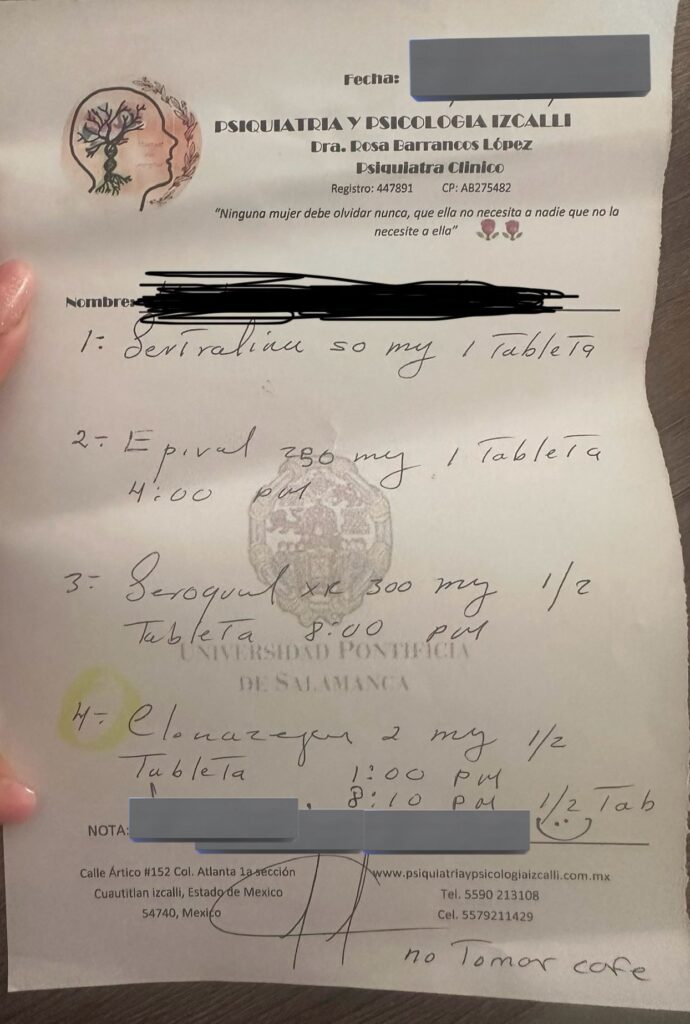 Fecha:
PSIQUIATRIA Y PSICOLOGIA IZCALLI
Dra. Rosa Barrancos López
Psiquiatra Clinico
Registro: 447891 CP: AB275482
“Ninguna mujer debe olvidar nunca, que ella no necesita a nadie que no la
necesite a ella”
Nombre:
1: Sertralina 50 mg 1 Tableta
2- Epival 250 mg 1 Tableta
4:00 pm
3- Seroquel XR 300 mg 1/2
Tableta 8:00 pm
UNIVERSIDAD PONTIFICIA
DE SALAMANCA
4- Clonazepan 2 mg 1/2
Tableta 1:00 pm
8:10 pm 1/2 Tab
NOTA:
Calle Ártico #152 Col. Atlanta 1a sección
Cuautitlan izcalli, Estado de Mexico
54740, Mexico
www.psiquiatriaypsicologiaizcalli.com.mx
Tel. 5590 213108
Cel. 5579211429
no Tomar cafe